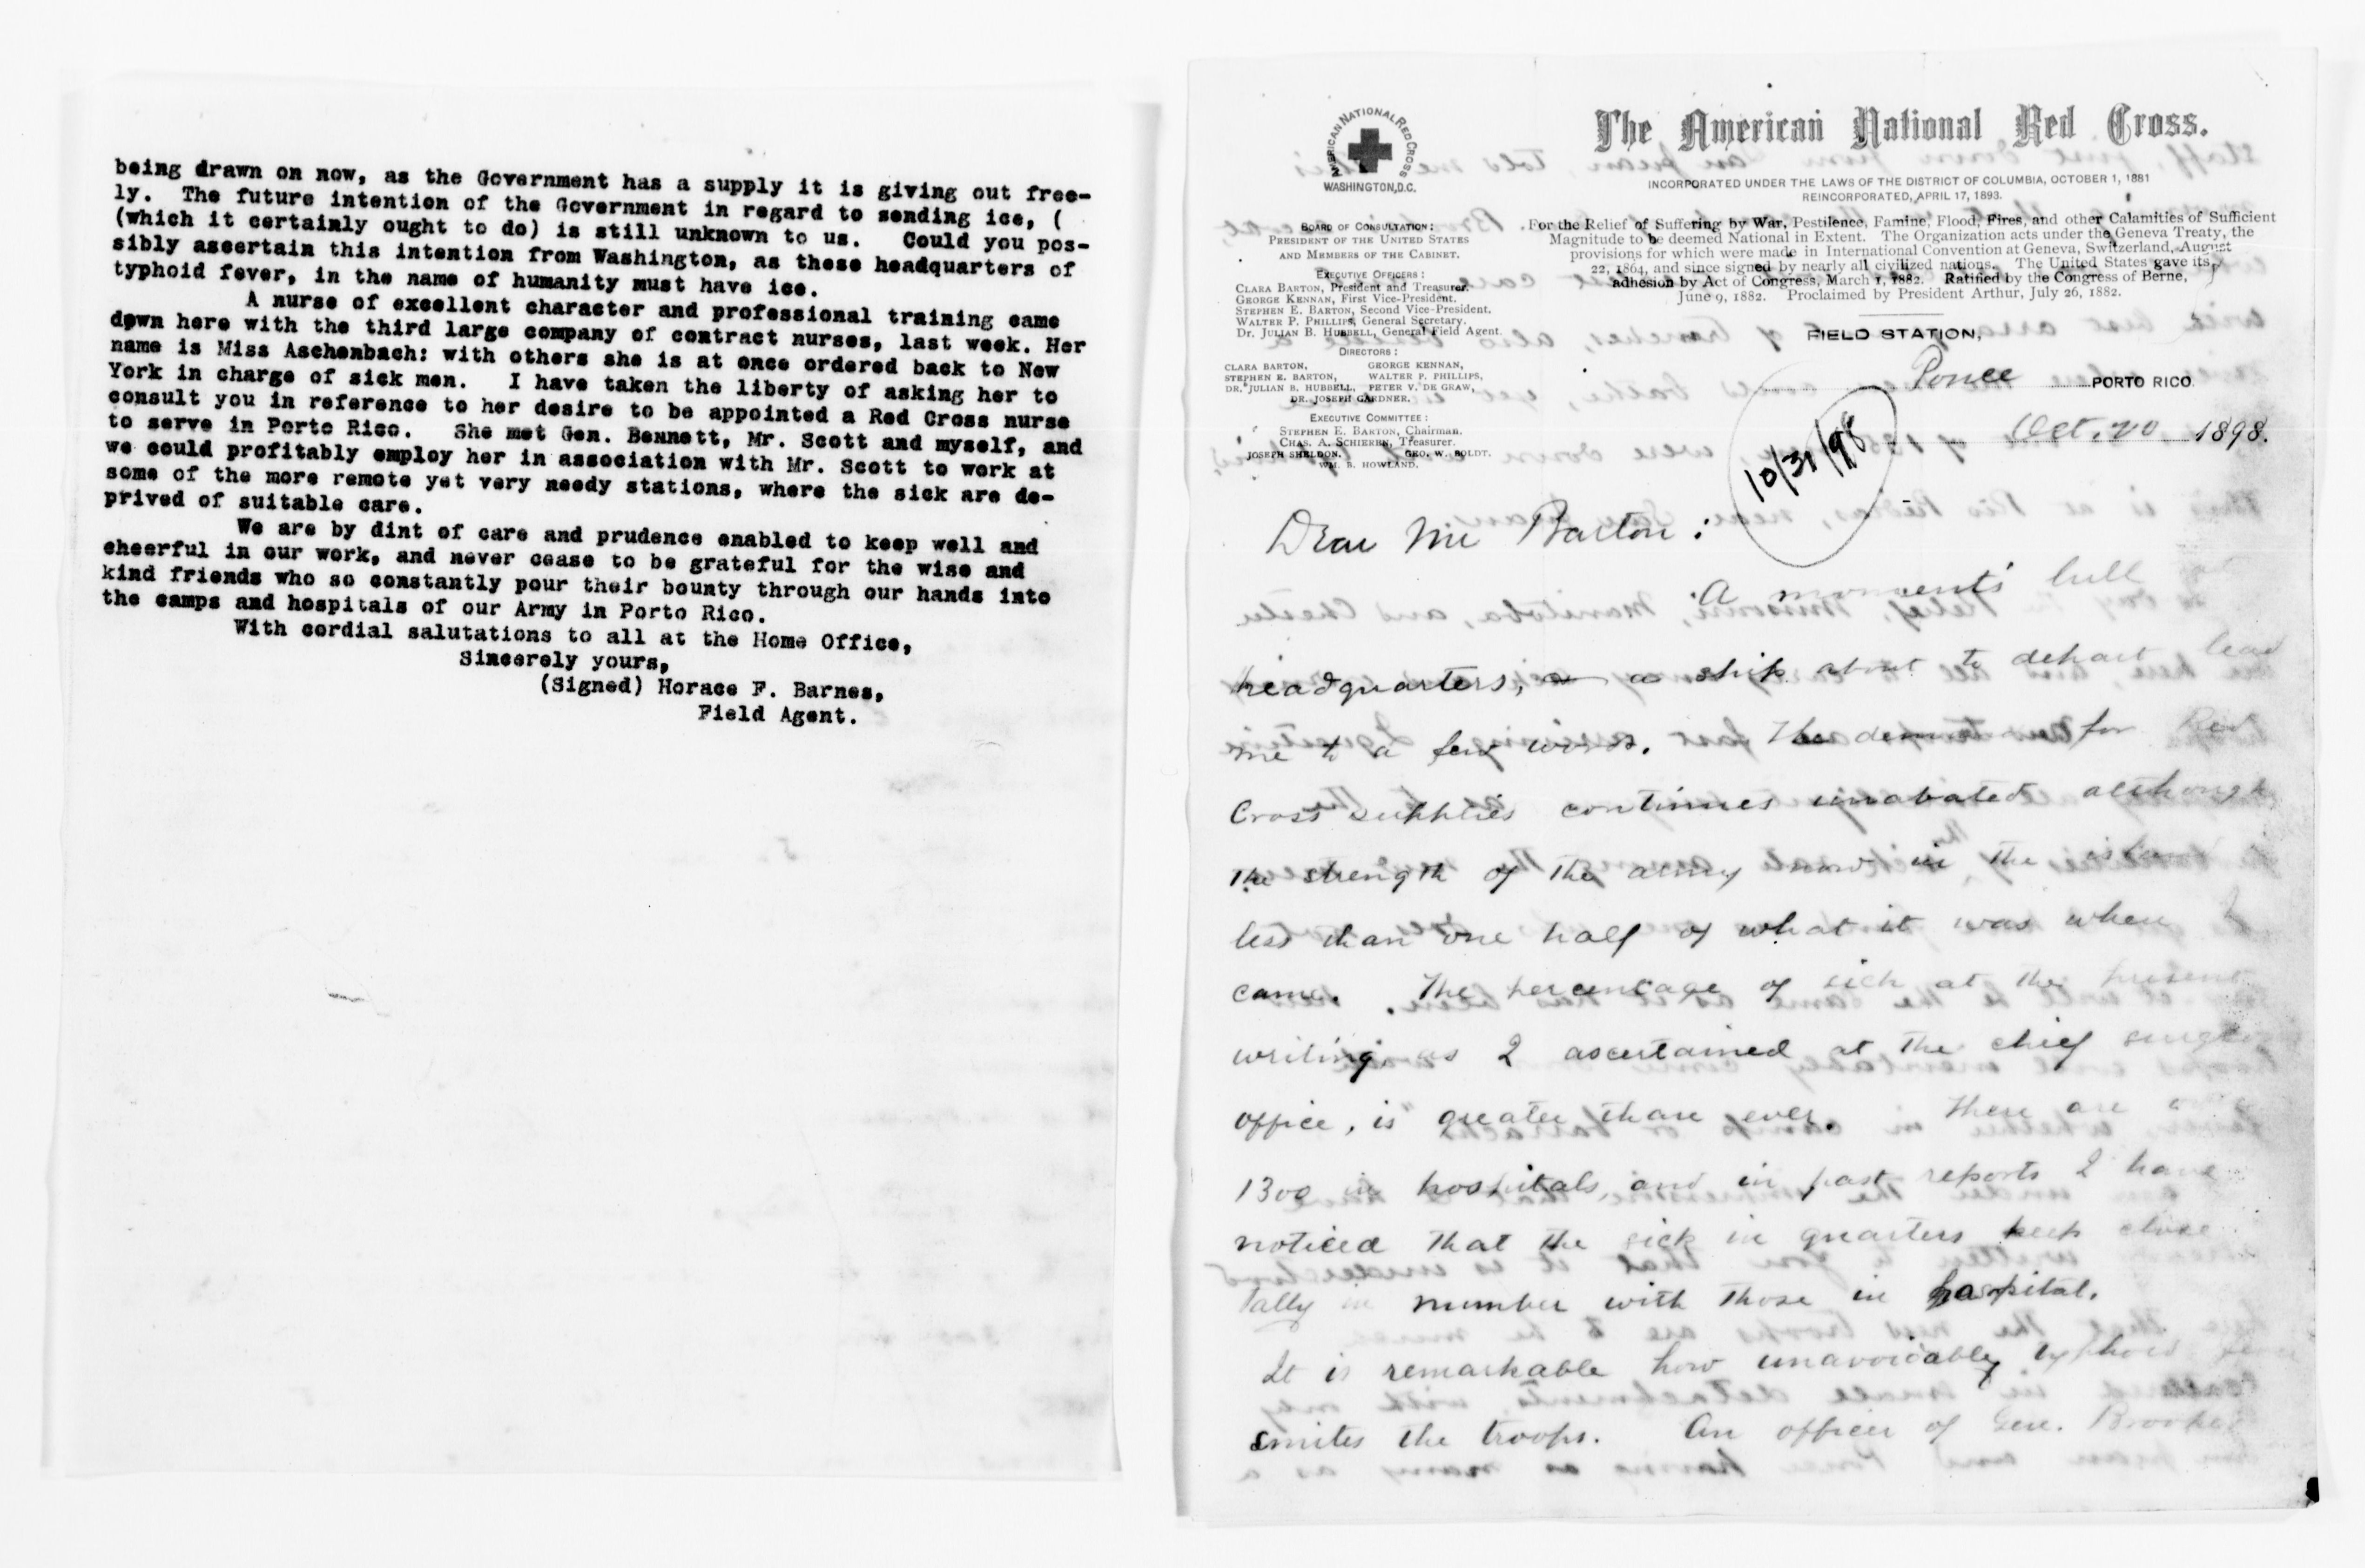 being drawn on now, as the Government has a supply it is giving out free-
ly. The future intention of the Government in regard to sending ice, (
(which it certainly ought to do) is still unknown to us. Could you pos-
sibly ascertain this intention from Washington, as these headquarters of
typhoid fever, in the name of humanity must have ice.
A nurse of excellent character and professional training came
down here with the third large company of contract nurses, last week. Her
name is Miss Aschenbach: with others she is at once ordered back to New
York in charge of sick men. I have taken the liberty of asking her to
consult you in reference to her desire to be appointed a Red Cross nurse
to serve in Porto Rico. She met Gen. Bennett, Mr. Scott and myself, and
we could profitably employ her in association with Mr. Scott to work at
some of the more remote yet very needy stations, where the sick are de-
prived of suitable care.
We are by dint of care and prudence enabled to keep well and
cheerful in our work, and never cease to be grateful for the wise and
kind friends who so constantly pour their bounty through our hands into
the camps and hospitals of our Army in Porto Rico.
With cordial salutations to all at the Home Office,
Sincerely yours,
(Signed) Horace F. Barnes,
Field Agent.
AMERICAN NATIONAL RED CROSS
WASHINGTON, D.C.
The American National Red Cross.
INCORPORATED UNDER THE LAWS OF THE DISTRICT OF COLUMBIA, OCTOBER 1, 1881
REINCORPORATED, APRIL 17, 1893.
For the Relief of Suffering by War, Pestilence, Famine, Flood, Fires, and other Calamities of Sufficient
Magnitude to be deemed National in Extent. The Organization acts under the Geneva Treaty, the
provisions for which were made in International Convention at Geneva, Switzerland, August
22, 1864, and since signed by nearly all civilized nations. The United States gave its
adhesion by Act of Congress, March 1, 1882. Ratified by the Congress of Berne,
June 9, 1882. Proclaimed by President Arthur, July 26, 1882.
BOARD OF CONSULTATION:
PRESIDENT OF THE UNITED STATES
AND MEMBERS OF THE CABINET.
EXECUTIVE OFFICERS:
CLARA BARTON, President and Treasurer.
GEORGE KENNAN, First Vice-President.
STEPHEN E. BARTON, Second Vice-President.
WALTER P. PHILLIPS, General Secretary.
DR. JULIAN B. HUBBELL, General Field Agent.
DIRECTORS:
CLARA BARTON, GEORGE KENNAN,
STEPHEN E. BARTON, WALTER P. PHILLIPS,
DR. JULIAN B. HUBBELL, PETER V. DE GRAW,
DR. JOSEPH GARDNER.
EXECUTIVE COMMITTEE:
STEPHEN E. BARTON, Chairman.
CHAS. A. SCHIEREN, Treasurer.
JOSEPH SHELDON. GEO. W. BOLDT.
WM. B. HOWLAND.
FIELD STATION,
Ponce PORTO RICO
Oct. 20 1898.
10/31/98
Dear Mr Barton:
A moments' lull at
headquarters, a ship about to depart lead
me to a few words. The demand for Red
Cross supplies continues unabated although
the strength of the army now in the island is
less than one half of what it was when I
came. The percentage of sick at the present
writing as I ascertained at the chief surgeon
office, is greater than ever. There are over
1300 in hospitals, and in past reports I have
noticed that the sick in quarters keep close
tally in number with those in hospital.
It is remarkable how unavoidably typhoid fever
smites the troops. An officer of Gen. Brooke's